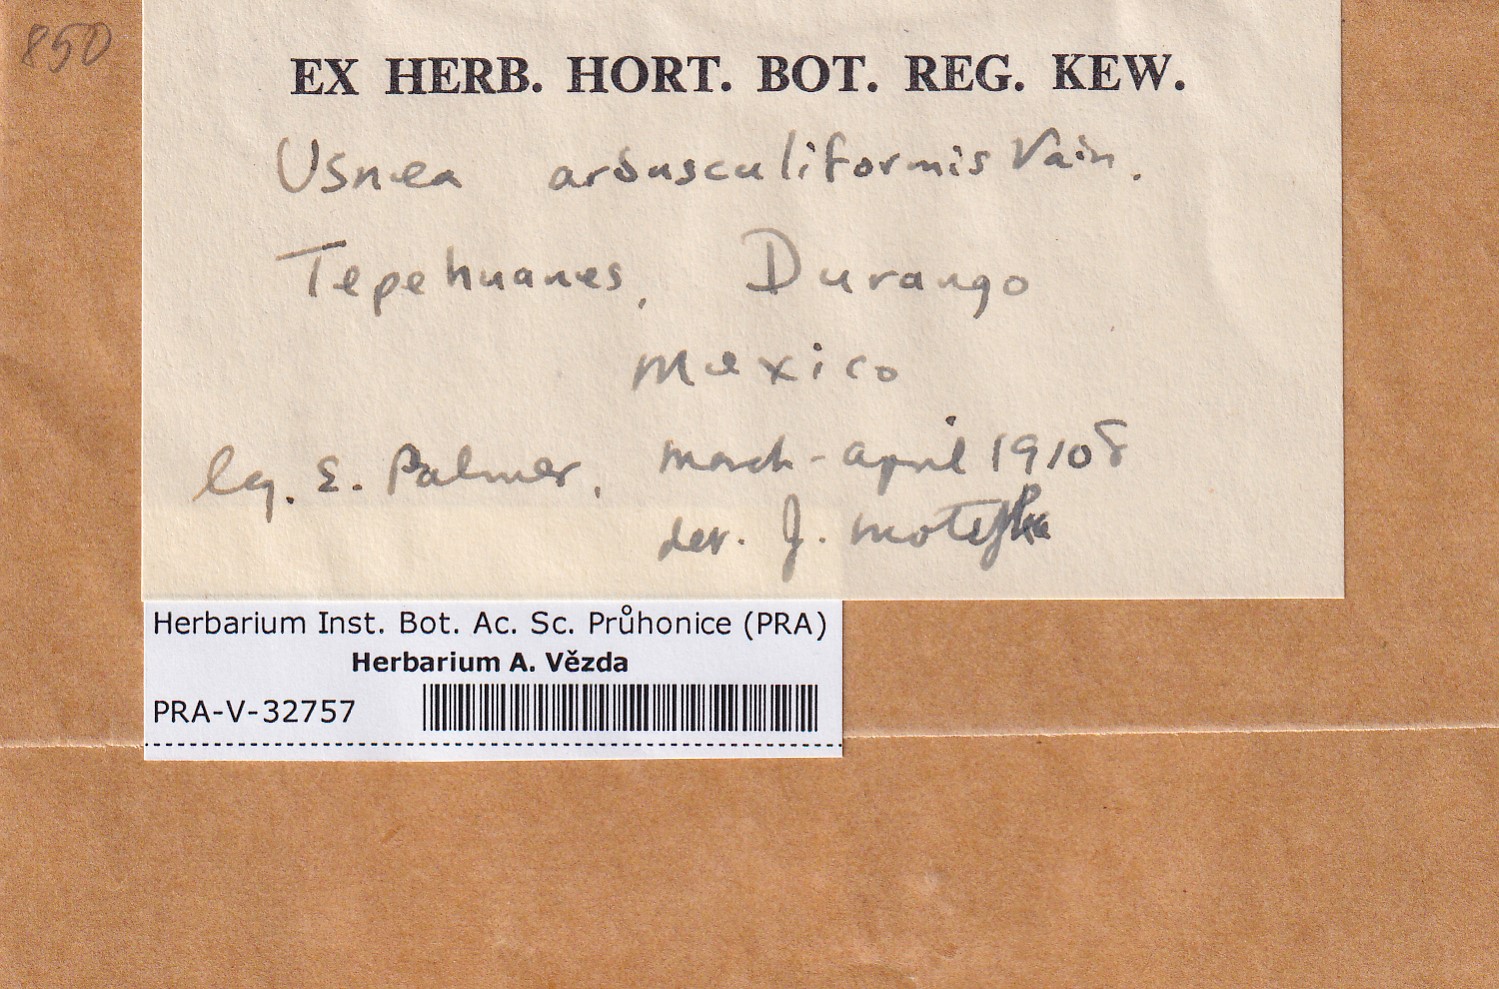 850
EX HERB. HORT. BOT. REG. KEW.
Usnea arbusculiformis Vain.
Tepehuanes, Durango
Mexico
lg. E. Palmer, march-april 19108
det. J. Motyka
Herbarium Inst. Bot. Ac. Sc. Průhonice (PRA)
Herbarium A. Vězda
PRA-V-32757